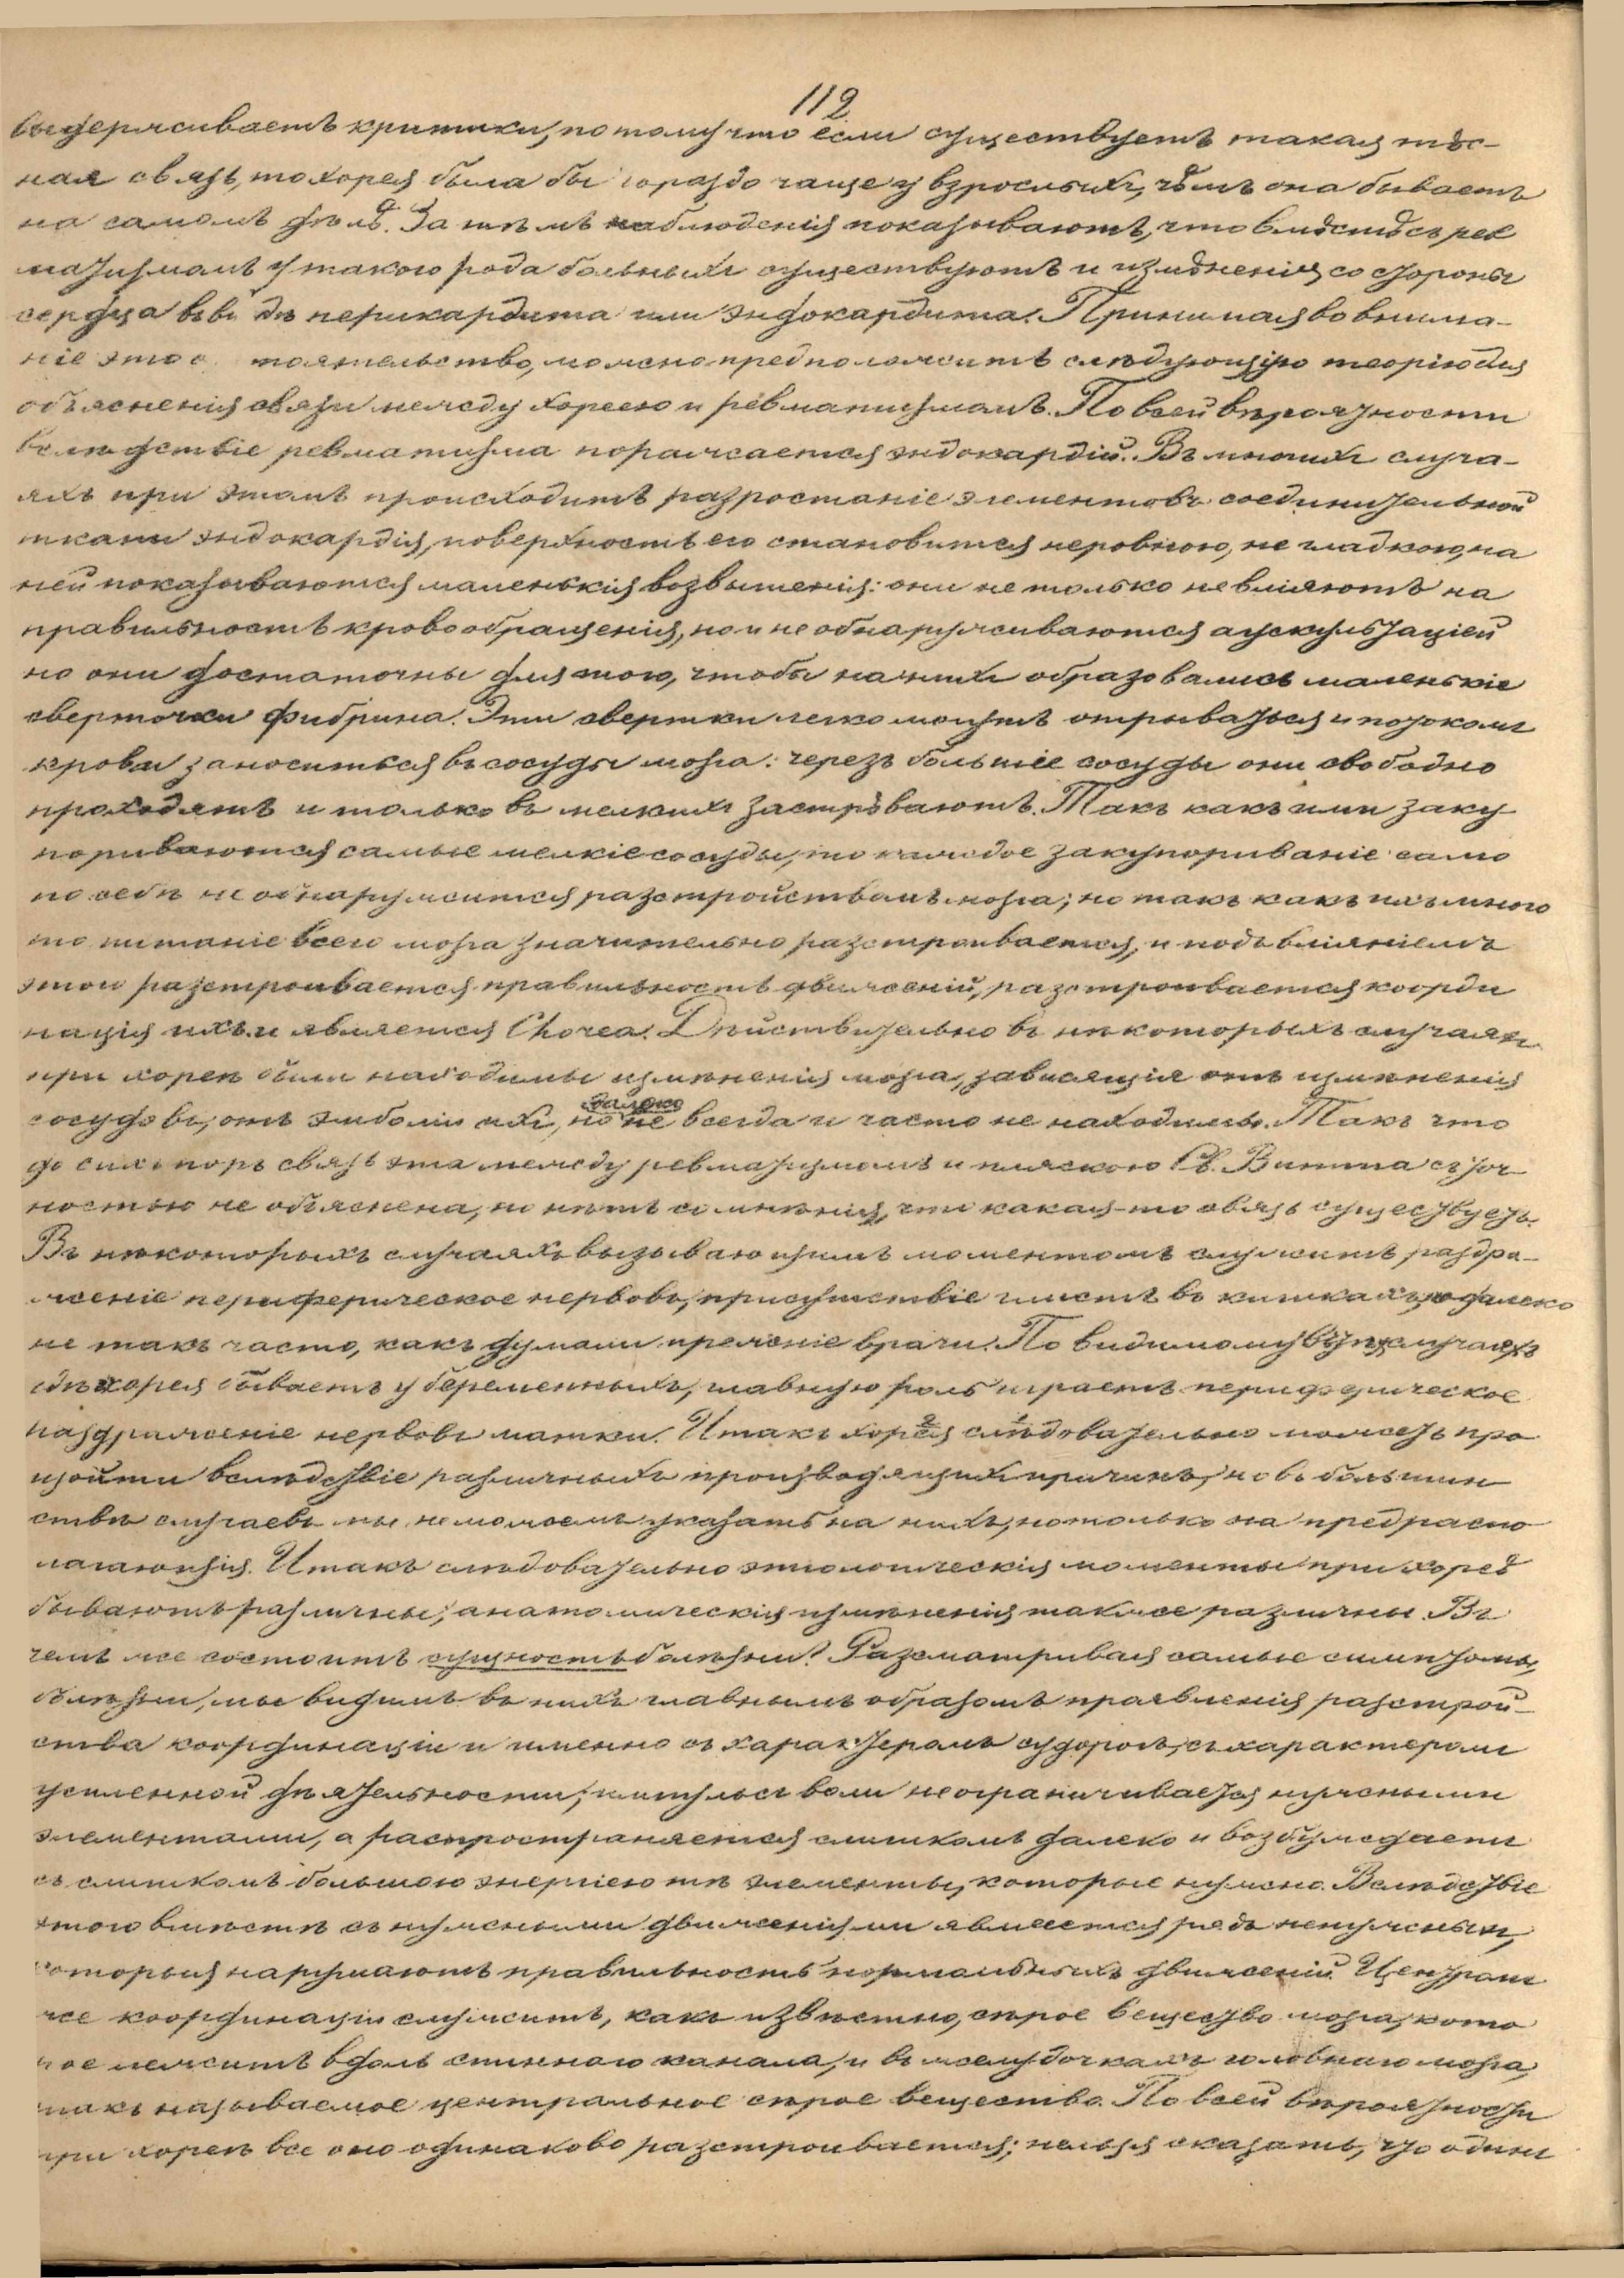 112
выдерживаетъ критики, потому что если существуетъ такая тѣс-
ная связь, то хорея была бы гораздо чаще у взрослыхъ, чѣмъ она бываетъ
на самомъ дѣлѣ. Затѣмъ наблюденія показываютъ, что вмѣстѣ съ рев
матизмомъ у такого рода больныхъ существуютъ и измѣненія со стороны
сердца въ видѣ перикардита или эндокардита. Принимая во внима-
ніе это о тоятельство, можно предположить слѣдующую теорію для
объясненія связи между хореею и ревматизмомъ. По всей вѣроятности
вслѣдствіе ревматизма поражается эндокардій. Въ многихъ случа-
яхъ при этомъ происходитъ разростаніе элементовъ соединительной
ткани эндокардія, поверхность его становится неровною, не гладкою, на
ней показываются маленькія возвышенія: они не только не вліяютъ на
правильность кровообращенія, но и не обнаруживаются аускультаціей
но они достаточны для того, чтобы на нихъ образовались маленькіе
сверточки фибрина. Эти свертки легко могутъ отрываться и потокомъ
крови заноситься въ сосуды мозга: черезъ большіе сосуды они свободно
проходятъ и только въ мелкихъ застрѣваютъ. Такъ какъ ими заку-
пориваются самые мелкіе сосуды, то каждое закупориваніе само
по себѣ не обнаружится разстройствомъ мозга; но такъ какъ ихъ много
то питаніе всего мозга значительно разстроивается, и подъ вліяніемъ
этого разстроивается правильность движеній, разстроивается коорди
нація ихъ и является Chorea. Дѣйствительно въ нѣкоторыхъ случаяхъ
при хореѣ были находимы измѣненія мозга, зависящія отъ измѣненія
сосудовъ, отъ эмболіи ихъ, но далеко не всегда и часто не находились. Такъ что
до сихъ поръ связь эта между ревматизмомъ и пляскою Св. Витта съ точ
ностью не объяснена, но нѣтъ сомнѣнія, что какая-то связь существуетъ.
Въ нѣкоторыхъ случаяхъ вызывающимъ моментомъ служитъ раздра-
женіе периферическое нервовъ, присутствіе глистъ въ кишкахъ, но далеко
не такъ часто, какъ думали прежніе врачи. По видимому въ тѣхъ случаяхъ
гдѣ хорея бываетъ у беременныхъ, главную роль играетъ периферическое
раздраженіе нервовъ матки. Итакъ хорея слѣдовательно можетъ про
изойти вслѣдствіе различныхъ производящихъ причинъ, но въ большин
ствѣ случаевъ мы не можемъ указать на нихъ, но только на предраспо
лагающія. Итакъ слѣдовательно этіологическія моменты при хореѣ
бываютъ различны, анатомическія измѣненія также различны. Въ
чемъ же состоитъ сущность болѣзни? Разсматривая самые симптомы
болѣзни, мы видимъ въ нихъ главнымъ образомъ проявленія разстрой-
ства координаціи и именно съ характеромъ судорогъ, съ характеромъ
усиленной дѣятельности; импульсъ воли не ограничивается нужными
элементами, а распространяется слишкомъ далеко и возбуждаетъ
съ слишкомъ большою энергіею тѣ элементы, которые нужно. Вслѣдствіе
этого вмѣстѣ съ нужными движеніями является рядъ ненужныхъ,
которыя нарушаютъ правильность нормальныхъ движеній. Центромъ
же координаціи служитъ, какъ извѣстно, сѣрое вещество мозга, кото
рое лежитъ вдоль спиннаго канала, и въ желудочкахъ головнаго мозга
такъ называемое центральное сѣрое вещество. По всей вѣроятности
при хореѣ все оно одинаково разстроивается; нельзя сказать, что одинъ